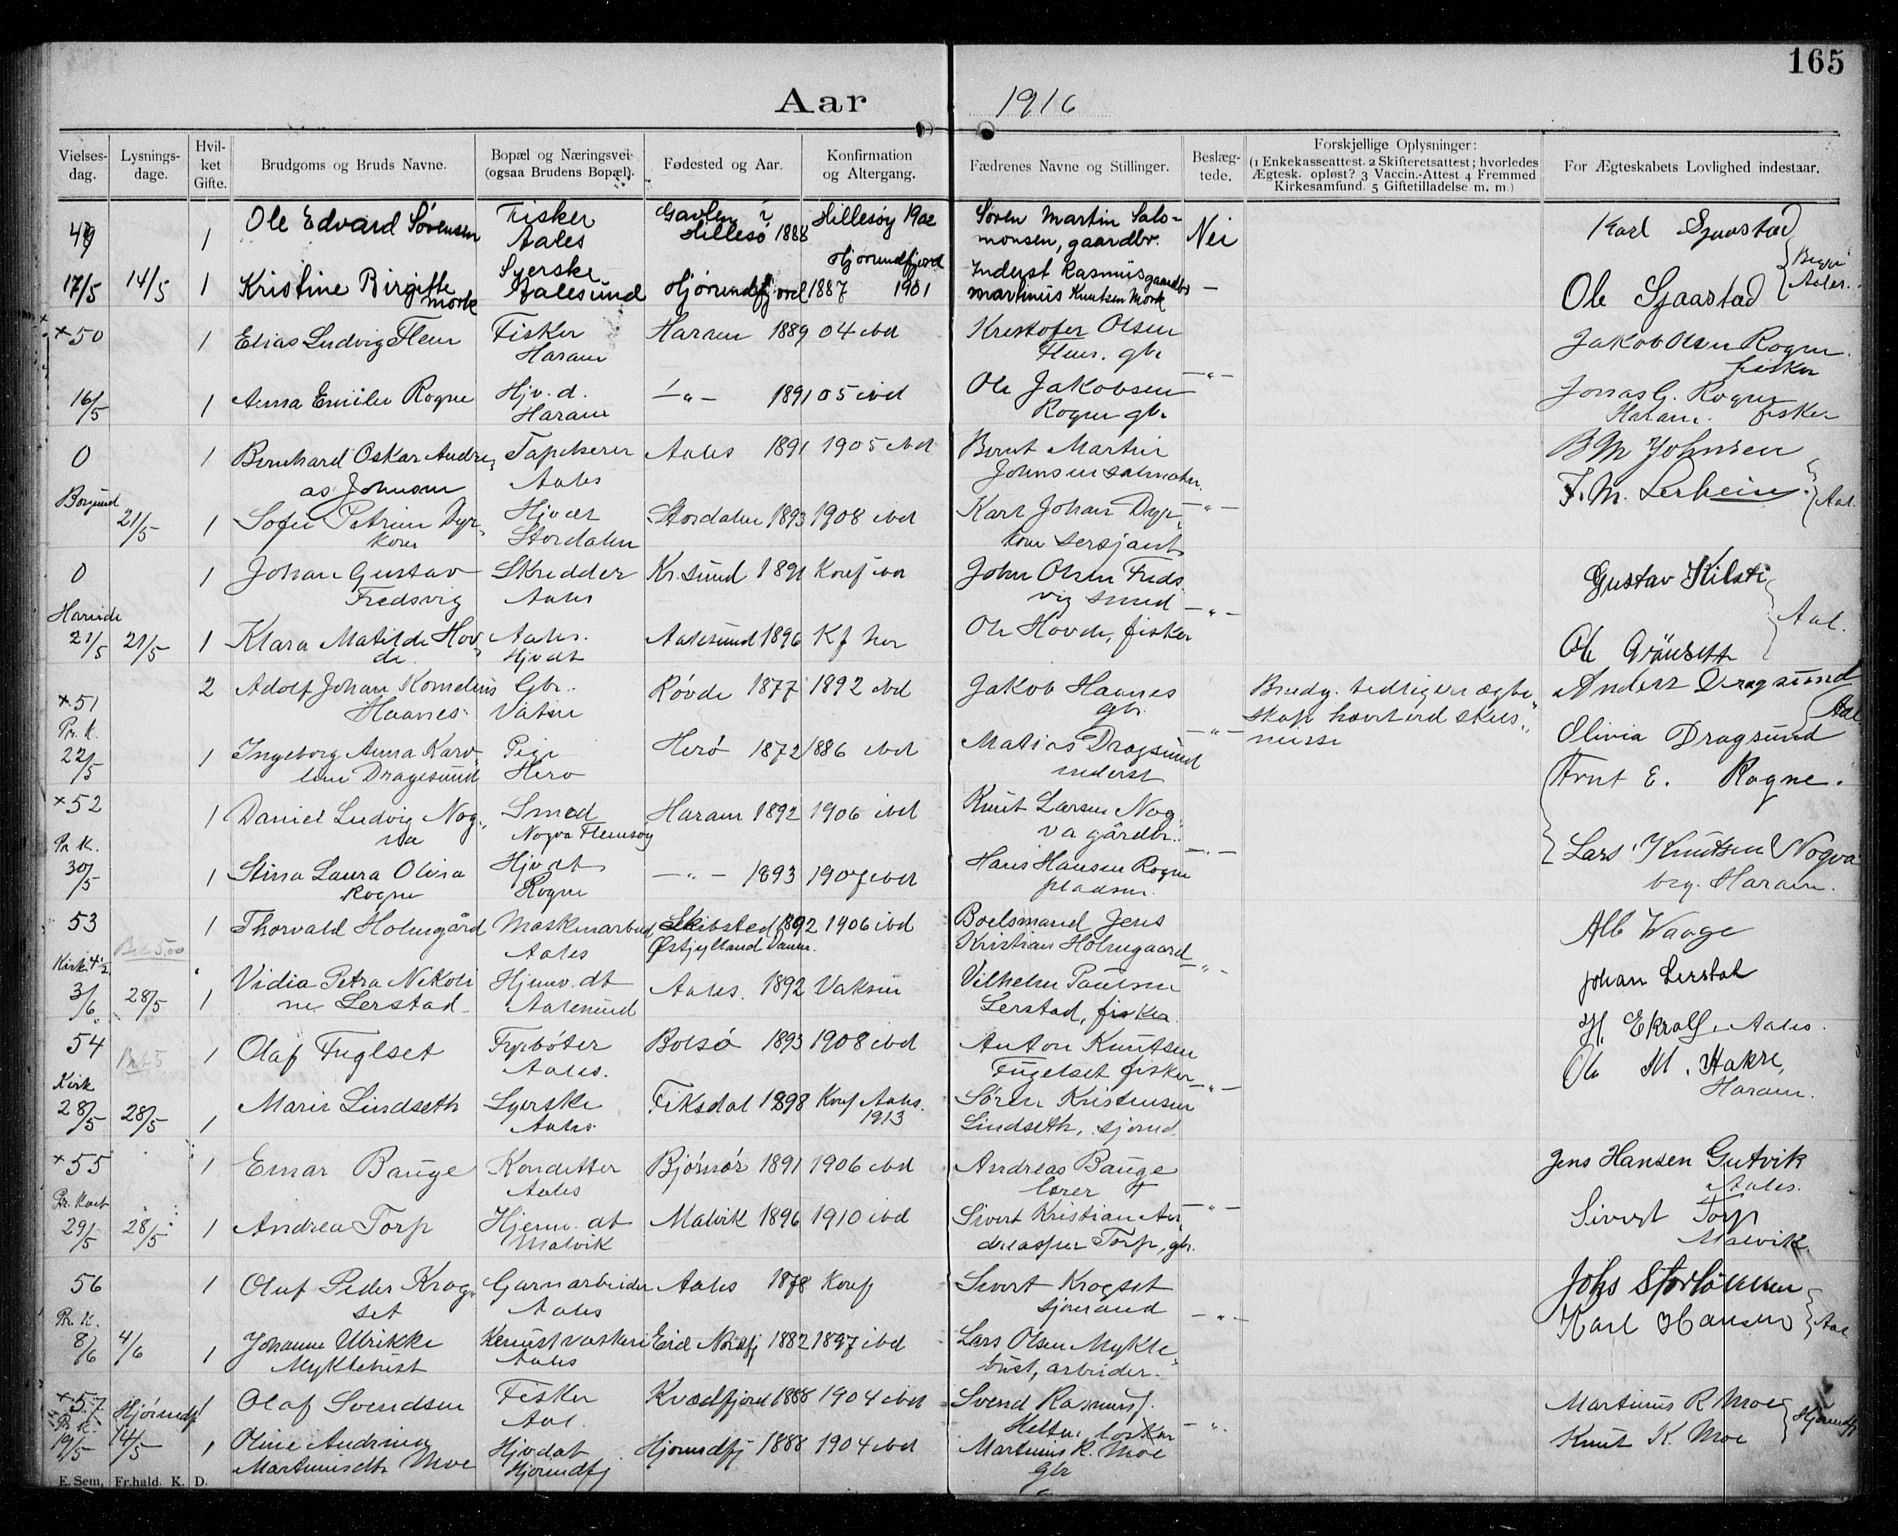 165
Aar 1916
Vielses-dag. Lysnings-dage. Hvil-ket Gifte. Brudgoms og Bruds Navne. Bopæl og Næringsvei (ogsaa Brudens Bopæl). Fødested og Aar. Konfirmation og Altergang. Fædrenes Navne og Stillinger. Beslæg-tede. Forskjellige Oplysninger: (1 Enkekasseattest. 2 Skifteretsattest; hvorledes Ægtesk. opløst? 3 Vaccin.-Attest 4 Fremmed Kirkesamfund 5 Giftetilladelse m. m.) For Ægteskabets Lovlighed indestaar.
49 1 Ole Edvard Sørensen Fisker Gavlen i Hillesøy 1902 Søren Martin Salo- Nei Karl Sjaastad
Aales Hillesø 1888 monsen, gaardbr.
Hjørundfjord
17/5 14/5 1 Kristine Birgitte Syerske Hjørundfjord 1887 1901 Inderst Rasmus gaardbr — Ole Sjaastad
Mork Aalesund Martinus Knutsen Mork
×50 1 Elias Ludvig Flem Fisker Haram 1889 04 ibd Kristofer Olsen Jakob Olsen Rogne
Haram Flem. gbr fisker
16/5 1 Anna Emilie Rogne Hjv. d. —"— 1891 05 ibd Ole Jakobsen —"— Jonas G. Rogne
Haram Rogne gbr Haram. fisker
0 1 Bernhard Oskar Andre- Tapetserer Aales 1891 1905 ibd Bernt Martin B M Johnsen
as Johnsen Aales Johnsen salmaker. F. M. Lerheim. Aal.
Borgund 21/5 1 Sofie Petrine Dyr- Hjv dt Stordalen 1893 1908 ibd Karl Johan Dyr- —"—
koren Stordalen koren sersjant
0 1 Johan Gustav Skredder Kr.sund 1891 Konf ibd John Olsen Freds Gustav Kilsti
Fredsvig Aales vig smed —"— Aal.
Hareide
21/5 21/5 1 Klara Matilde Hov- Aales. Aalesund 1896 Kf her Ole Hovde, fisker Ole Grönseth
de Hjv dt
×51 2 Adolf Johan Kornelius Gbr. Røvde 1877 1892 ibd Jakob Haanes Brudg. tidligere ægte- Anders Dragsund
Haanes Vatne gbr. skap hævet ved skils- Aal
Pr. K. —"— misse Olivia Dragsund
22/5 1 Ingeborg Anna Karo- Pige Herø 1872 1886 ibd Matias Dragsund
line Dragesund Herø inderst
×52 1 Daniel Ludvig Nog- Smed Haram 1892 1906 ibd Knut Larsen Nog- Arnt E. Rogne.
va Nogva Flemsøy va gårdbr.
Pr. K.
30/5 1 Stina Laura Olina Hjv dt —"— 1893 1907 ibd Hans Hansen Rogne —"— Lars Knutsen Nogva
Rogne Rogne pladsm. beg. Haram.
53 1 Thorvald Holmgård Maskinarbeid Skibsted 1892 1906 ibd Boelsmand Jens Alb Waage
Aales Østjylland Danm. Kristian Holmgaard
Kirk 4½ —"—
3/6 28/5 1 Vidia Petra Nikoli Hjemv. dt Aales. 1892 Vaksin Vilhelm Paulsen Johan Lerstad
ne Lerstad Aalesund Lerstad, fisker
54 1 Olaf Fuglset Fyrbøter Bolsø 1893 1908 ibd Anton Knutsen H. Ekroll, Aales.
Aales. Fugelset fisker —"— Ole M. Hakre,
Kirk Haram.
28/5 28/5 1 Marie Lindseth Syerske Fiksdal 1898 Konf Aales. Søren Kristensen
Aales 1913 Lindseth, sjømd
×55 1 Einar Bauge Konditter Bjørnør 1891 1906 ibd Andreas Bauge Jens Hansen Gutvik
Aales lærer Aales.
Pr. Kort
29/5 28/5 1 Andrea Torp Hjemv. dt Malvik 1896 1910 ibd Sivert Kristian An- —"— Sivert Torp
Malvik dreassen Torp, gbr. Malvik
56 1 Oluf Peder Krog- Garnarbeider Aales 1878 Konf Sivert Krogset Johs Storløkken
set Aales sjømand —"— Karl Hansen Aal
Pr. K.
8/6 4/6 1 Johanne Ulrikke Aales Eid Nordfj 1882 1897 ibd Lars Olsen Mykle-
Myklebust bust, arbeider.
×57 Hjørundfj 1 Olaf Svendsen Fisker Kvædfjord 1888 1904 ibd Svend Rasmus Martinus R Moe
Pr. K. Aal. —"— Hjørundfj
19/5 14/5 1 Oline Andrina Hjv dat Hjørundfj 1888 1904 ibd Martinus R. Moe Knut K. Moe
Martinusdtr Moe Hjørundfj Gbr
E. Sem, Fr.hald. K. D.